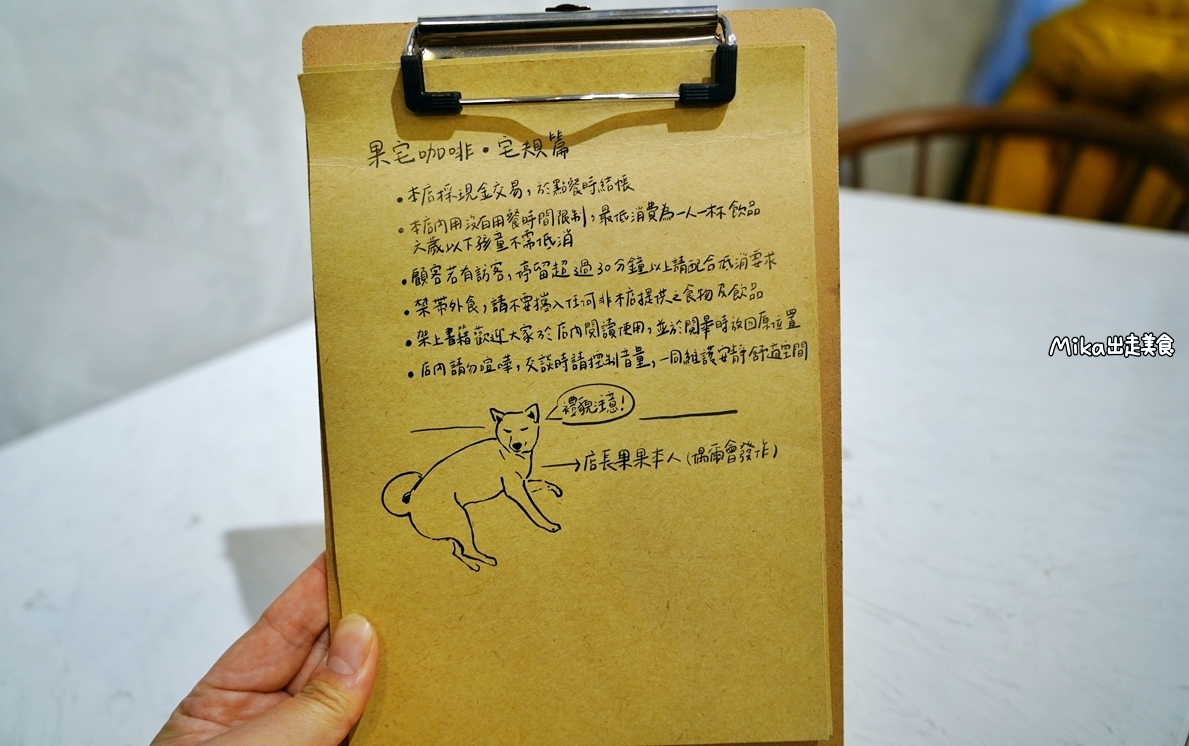 果宅咖啡•宅規篇
•本店採現金交易，於點餐時結帳
•本店內用沒有用餐時間限制，最低消費為一人一杯飲品
六歲以下孩童不需低消
•顧客若有訪客，停留超過30分鐘以上請配合低消要求
•禁帶外食，請不要攜入任何非本店提供之食物及飲品
•架上書籍歡迎大家於店內閱讀使用，並於閱畢時放回原位置
•店內請勿喧嘩，交談時請控制音量，一同維護安靜舒適空間
禮貌注意！
→店長果果本人（偶爾會發作）
Mika出走美食